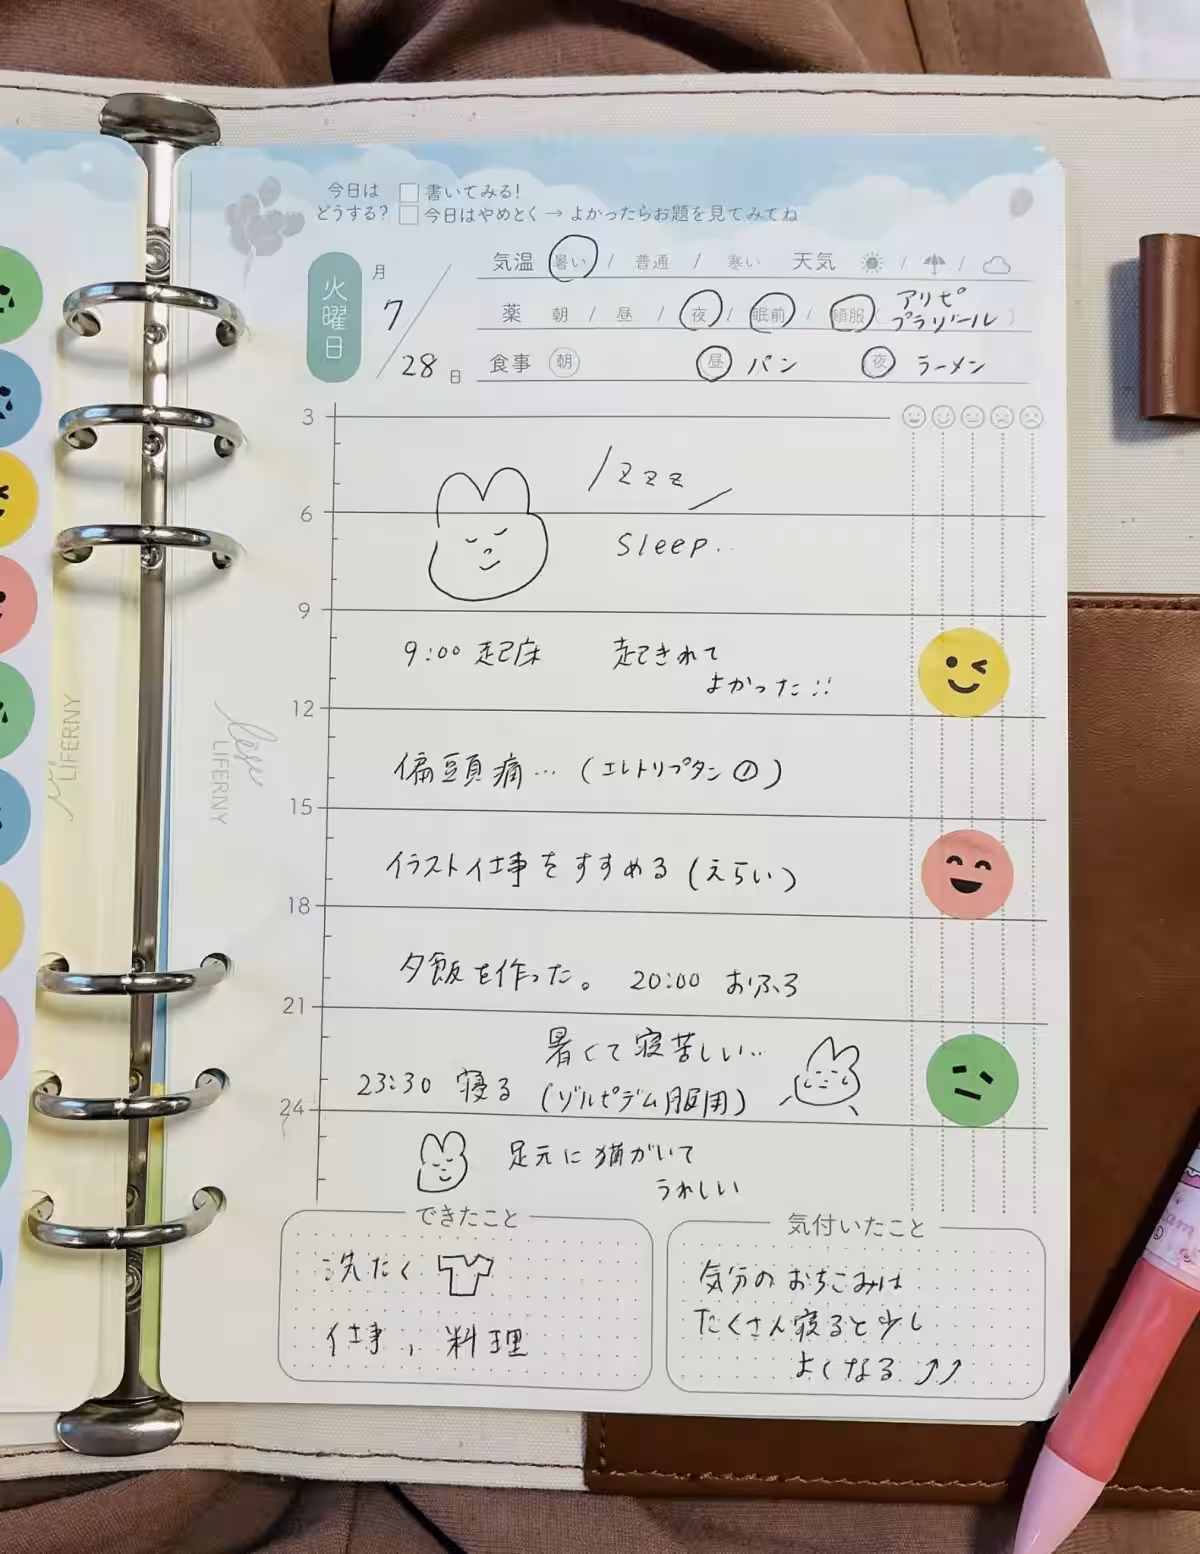 今日は
どうする?
書いてみる!
今日はやめとく → よかったらお題を見てみてね
火曜日
7月/28日
気温 暑い / 普通 / 寒い 天気
薬 朝 / 昼 / 夜 / 眠前 / 頓服 ( アリピプラゾール )
食事 朝 昼 パン 夜 ラーメン
3
/ zzz /
6
Sleep..
9
9:00 起床 起きれて
よかった!!
12
偏頭痛… (エレトリプタン①)
15
イラスト仕事をすすめる (えらい)
18
夕飯を作った。 20:00 おふろ
21
暑くて寝苦しい…
23:30 寝る (ゾルピデム服用)
24
足元に猫がいて
うれしい
できたこと
洗たく
仕事, 料理
気付いたこと
気分のおちこみは
たくさん寝ると少し
よくなる ⤴⤴
LIFERNY
LIFERNY